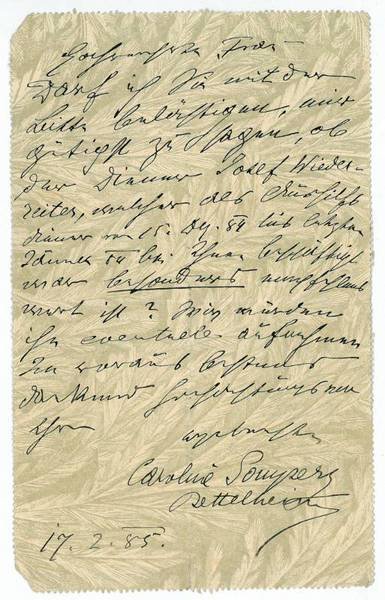 Hochverehrte Frau
Darf ich Sie mit der
Bitte belästigen, mir
gütigst zu sagen, ob
der Diener Josef Wieder-
reiter, welcher als
diener vom 15. Dz. 84 bis letzten
Jänner bei Ihnen beschäftigt
war besonders empfehlens
wert ist? Wir würden
ihn eventuell aufnehmen
Im voraus bestens
dankend hochachtungsvoll
Ihre
ergebenste
Caroline Gomperz
Bettelheim
17. 2. 85.